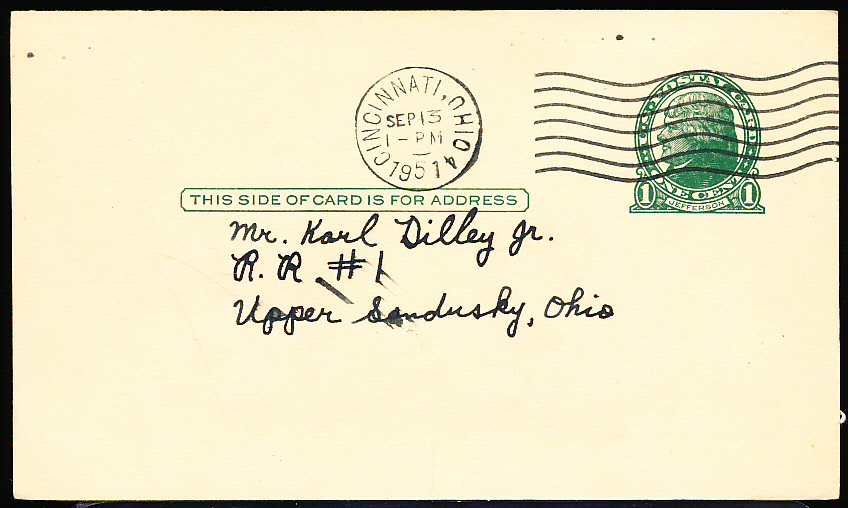 CINCINNATI, OHIO 4
SEP 13
1 - PM
1951
U.S. POSTAL CARD
ONE CENT
1 JEFFERSON 1
THIS SIDE OF CARD IS FOR ADDRESS
Mr. Karl Dilley Jr.
R. R #1
Upper Sandusky, Ohio